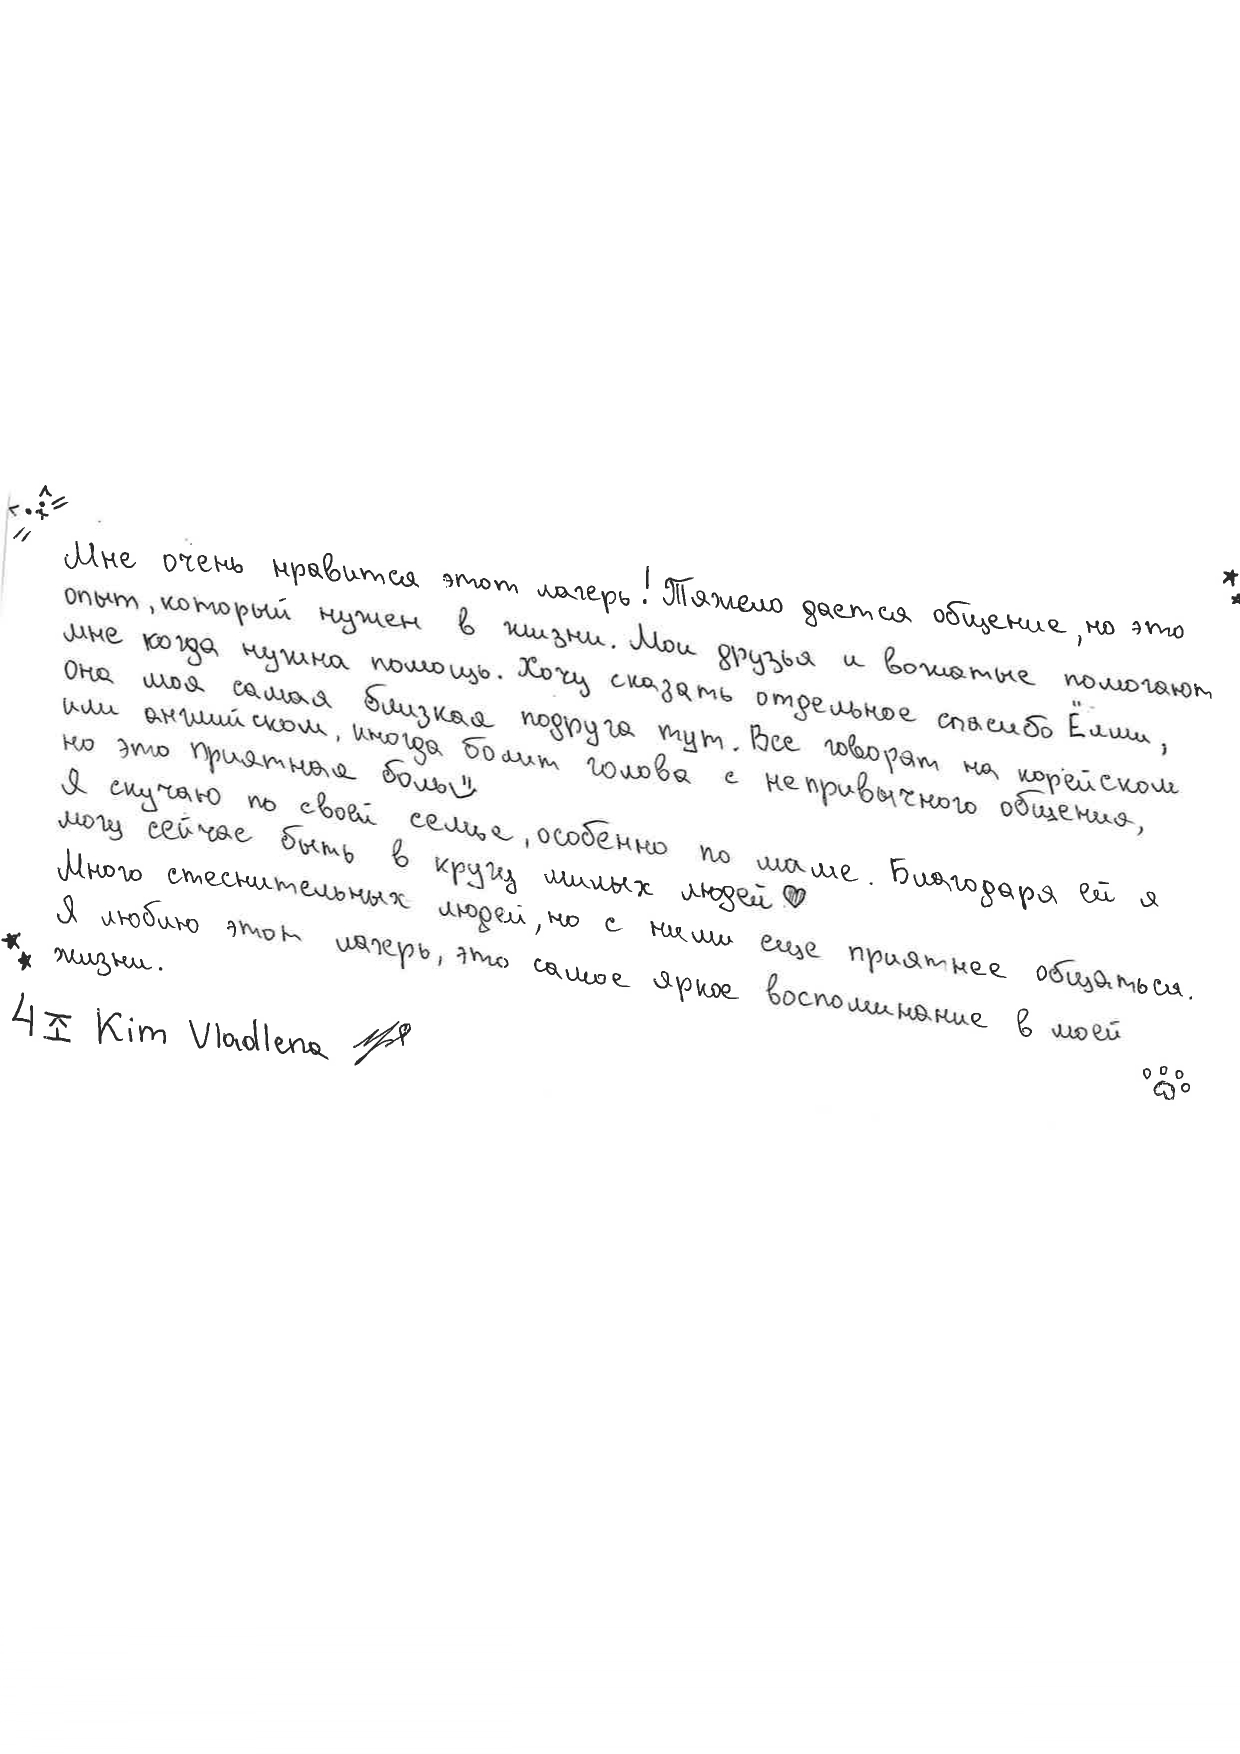 Мне очень нравится этот лагерь! Тяжело дается общение, но это
опыт, который нужен в жизни. Мои друзья и вожатые помогают
мне когда нужна помощь. Хочу сказать отдельное спасибо Ёлши,
она моя самая близкая подруга тут. Все говорят на корейском
или английском, иногда болит голова с непривычного общения,
но это приятная боль
Я скучаю по своей семье, особенно по маме. Благодаря ей я
могу сейчас быть в кругу милых людей ♡
Много стеснительных людей, но с ними еще приятнее общаться.
Я люблю этот лагерь, это самое яркое воспоминание в моей
жизни.
4조 Kim Vladlena